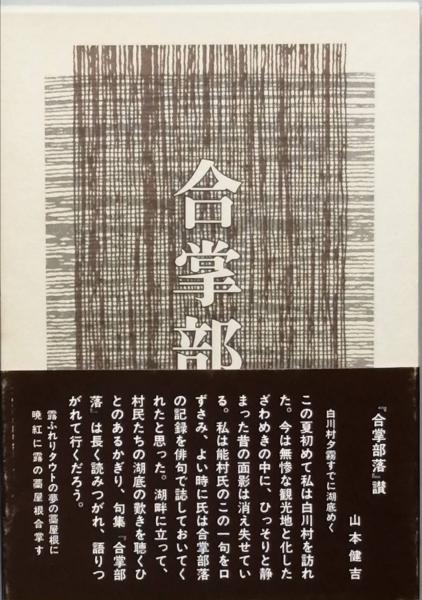 合掌部
『合掌部落』讃
山本健吉
白川村夕霧すでに湖底めく
この夏初めて私は白川村を訪れ
た。今は無惨な観光地と化した
ざわめきの中に、ひっそりと静
まった昔の面影は消え失せてい
る。私は能村氏のこの一句を口
ずさみ、よい時に氏は合掌部落
の記録を俳句で誌しておいてく
れたと思った。湖畔に立って、
村民たちの湖底の歎きを聴くひ
とのあるかぎり、句集『合掌部
落』は長く読みつがれ、語りつ
がれて行くだろう。
露ふれりタウトの夢の藁屋根に
暁紅に露の藁屋根合掌す